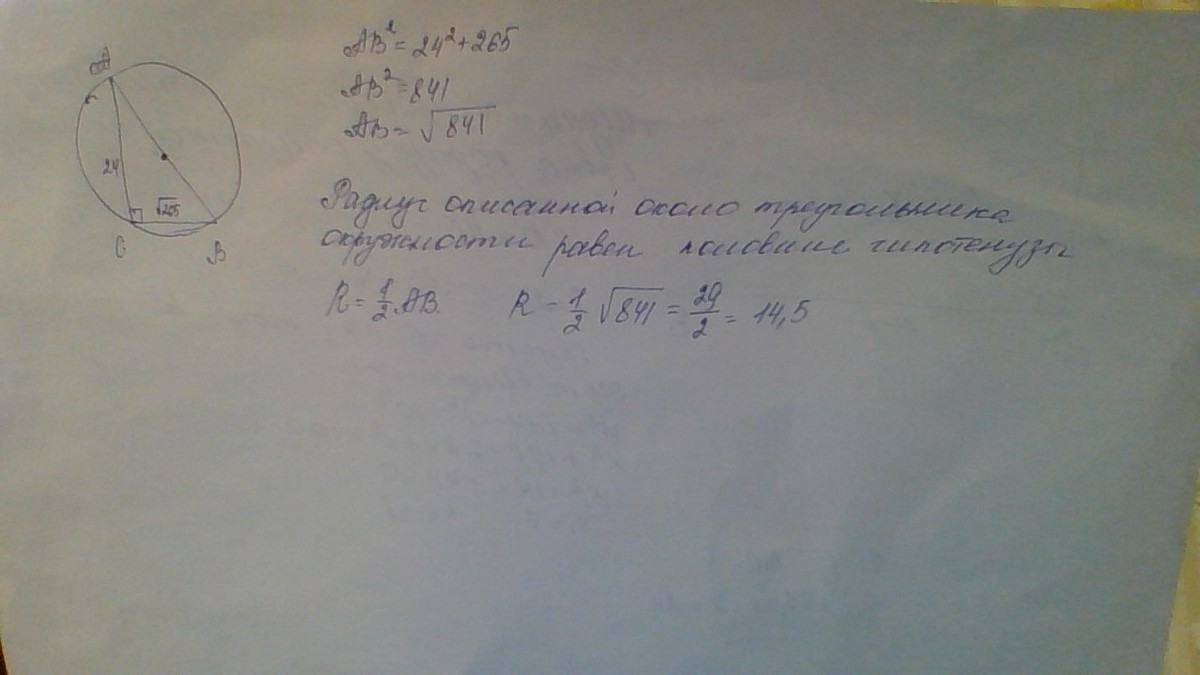 AB² = 24² + 265
AB² = 841
AB = √841
A
24
√265
C
B
Радиус описанной около треугольника
окружности равен половине гипотенузы
R = 1/2 AB. R = 1/2 √841 = 29/2 = 14,5